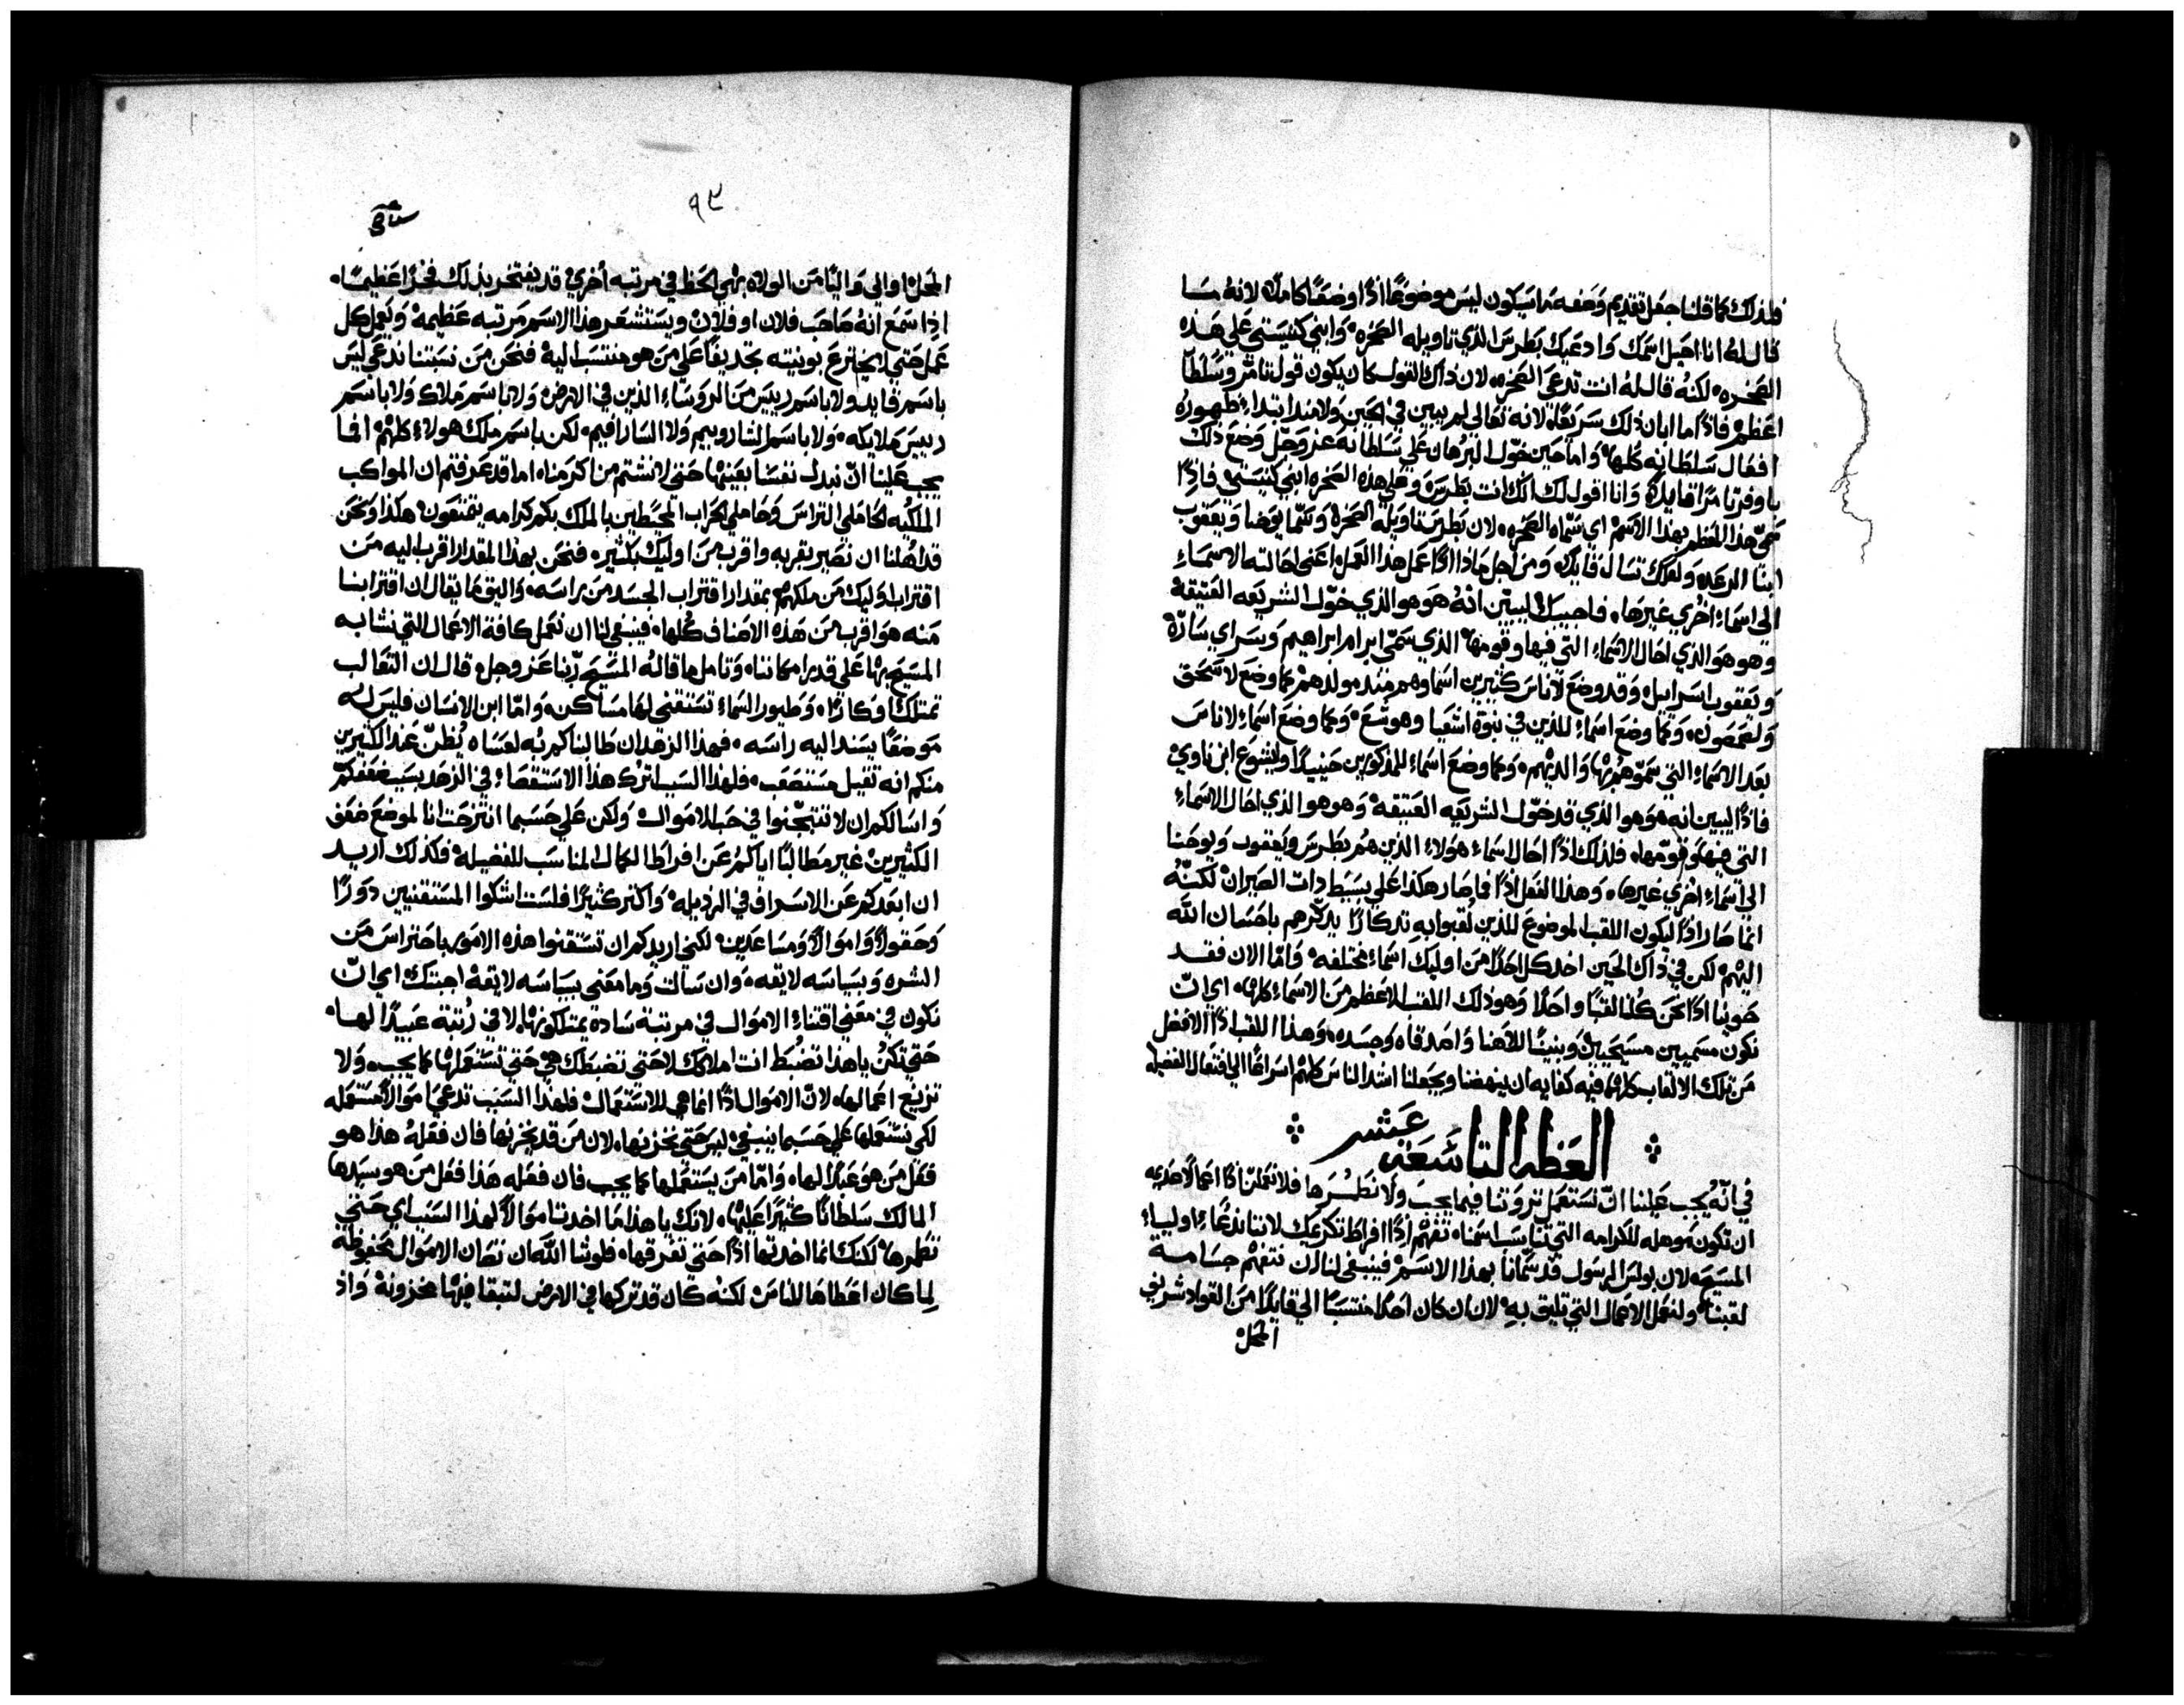 فلذلك كما قلنا جعل تقديم وضعه ما سيكون ليس موضوعًا اذًا وضعًا كاملًا لانه ما
قال له انا احيل اسمك وادعيك بطرس الذي تاويله الصخره وابني كنيستي علي هذه
الصخره لكنه قال له انت تدعي الصخره لان ذاك القول كان يكون قول تامر وسلطا
اعظم فاذًا ما ابان ذلك سريعًا لانه تعالي لم يبين في الحين ولا منذ ابتداء ظهوره
افعال سلطانه كلها واما حين خوّل البرهان علي سلطانه عز وجل وضع ذلك
باوفر تامر قايلًا وانا اقول لك انك انت بطرس وعلي هذه الصخره ابني كنيستي فاذًا
سمي هذا المعظم بهذا الاسم اي سماه الصخره لان بطرس تاويله الصخره وسمّا يوحنا ويعقوب
ابنا الرعد ولعلك تسال قايلًا ومن اجل ماذا اذًا عمل هذا العمل اعني احالته الاسماء
الي اسماء اخري غيرها فاجيبك ليبيّن انه هو هو الذي خوّل الشريعه العتيقه
وهو هو الذي احال الاسماء التي فيها وقومها الذي سمي ابرام ابراهيم وسراي سارّه
ويعقوب اسراييل وقد وضع لاناس كثيرين اسماوهم منذ مولدهم كما وضع لاسحق
ولشمصون وكما وضع اسماء للذين في نبوة اشعيا وهوشع وكما وضع اسماء لاناس
بعد الاسماء التي سموهم بها والديهم وكما وضع اسماء للمذكورين حينيذًا وليشوع ابن ناوي
فاذًا ليبين انه هو هو الذي قد خوّل الشريعه العتيقه وهو هو الذي احال الاسماء
التي فيها وقومها فلذلك اذًا احال اسماء هولاء الذين هم بطرس ويعقوب ويوحنا
الي اسماء اخري غيرها وهذا الفعل اذًا فما صار هكذا علي بسيط ذات الصيران لكنه
انما صار اذًا ليكون اللقب الموضوع للذين لقبوا به تذكارًا يذكّرهم باحسان الله
اليهم لكن في ذاك الحين اخذ كل احدًا من اوليك اسماء مختلفه واما الان فقد
حوينا اذًا نحن كلنا لقبًا واحدًا وهو ذلك اللقب الاعظم من الاسماء كلها اي ان
نكون مسميين مسيحيين وبنينًا للاهنا واصدقاه وجسده وهذا اللقب اذًا الافضل
من تلك الالقاب كلها فيه كفايه ان ينهضنا ويجعلنا اشد الناس كلهم اسراعًا الي افتعال الفضيله
العظه التاسعة عشر
في انّه يجب علينا انّ نستعمل ثروتنا فيما يجب ولا نطمرها فلا نعملنّ اذًا اعمالًا عديمه
ان تكون موهله للكرامه التي تناسب اسمنا تفهّم اذًا افراط تكرعيك لاننا ندعا اولياء
المسيح لان بولس الرسول قد سمّانا بهذا الاسم فينبغي لنا ان نتفهم جسامة
لقبنا ولنعمل الاعمال التي تليق به لان ان كان احدًا منتسبًا الي قايدًا من القواد شريف
المحل
٩٣
المحل او الي واليًا من الولاه بهي الحظ في مرتبه أخري قد يفتخر بذلك فخرًا عظيمًا
اذا سمع انه صاحب فلان او فلان ويستشعر هذا الاسم مرتبه عظيمه ويعمل كل
عمل حتي لا يخترع بونيته تجديفًا علي من هو منتسب اليه فنحن من نسبتنا ندعي ليس
باسم قايد ولا باسم رييس من الروساء الذين في الارض ولا باسم ملاك ولا باسم
رييس ملايكه ولا باسم الشاروبيم ولا السارافيم لكن باسم ملك هولاء كلهم انما
يجب علينا انّ نبدل نفسنا بعينها حتي لا نشتم من اكرمنا اما قد عرفتم ان المواكب
الملكيه لحاملي التراس وحاملي الحراب المحيطين بالملك بكم كرامه يتمتعون هكذا ونحن
قد اهلنا ان نصير بقربه واقرب من اوليك بكثير فنحن بهذا المقدار اقرب اليه من
اقتراب اوليك من ملكهم بمقدار اقتراب الجسد من راسه واليق ما يقال ان اقترابنا
منه هو اقرب من هذه الاصناف كلها فينبغي لنا ان نعمل كافة الاعمال التي نشابه
المسيح بها علي قدر امكاننا وتامل ما قاله المسيح ربّنا عز وجل قال ان الثعالب
تمتلك اوكارًا وطيور السماء تستقني لها مساكن وامّا ابن الانسان فليس له
موضعًا يسند اليه راسه فهذا الزهد ان طالبناكم به لعساه يُظنّ عند الكثيرين
منكم انه ثقيل مستصعب فلهذا السبب اترك هذا الاستقصاء في الزهد بسبب ضعفكم
واسالكم ان لا تتبجّنوا في حب الاموال ولكن علي حسبما انتزحت انا لموضع ضعف
الكثيرين غير مطالبًا اياكم عن افراط الكمال المناسب للفضيله فكذلك اريد
ان ابعدكم عن الاسراف في الرذيله واكثر كثيرًا فلست اشكوا المستقنيين دورًا
وحقولًا واموالًا ومساعدين لكني اريدكم ان تستقنوا هذه الامور باحتراس من
الشره وبسياسه لايقه وان سالت وما معني بسياسه لايقه اجبتك اي انّ
نكون في معني اقتناء الاموال في مرتبة سادة يمتلكونها لا في رُتبة عبيدًا لها
حتي تكن يا هذا تضبط انت املاكك لا حتي تضبطك هي حتي تستعملها كما يجب ولا
تزيغ اعمالها لانّ الاموال اذًا انما هي للاستعمال فلهذا السبب تدعي اموالًا مستعمله
لكي نستعملها علي حسبما ينبغي ليس حتي نخزنها لان من قد يخزنها فان فعله هذا هو
فعل من هو عبدًا لها وامّا من يستعملها كما يجب فان فعله هذا فعل من هو سيدها
المالك سلطانًا كثيرًا عليها لانك يا هذا ما اخذت اموالًا لهذا السبب اي حتي
تطمرها لكنك انما اخذتها اذًا حتي تفرقها فلو شا الله ان تصان الاموال محفوظة
لما كان اعطاها للناس لكنه كان قد تركها في الارض لتبقا فيها مخزونة واذ